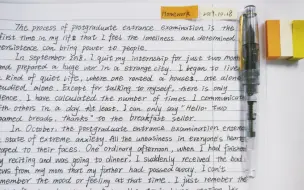 Homework
The process of postgraduate entrance examination is the
first time in my life that I feel the loneliness and determined
persistence can bring power to people.
In september 2nd, I quit my internship for just two months
and prepared a huge in a strange city. I began to live
kind of quiet life, where one rented a house, ate alone
studied alone. Except for talking to myself, there is only
I have calculated the number of times I communicate
with others in a day. At least, I can only say "Hello! Two
steamed breads, thanks" to the breakfast seller.
In October, the postgraduate entrance examination
a state of extreme anxiety. All the uneasiness in everyone's
to their faces. One ordinary afternoon, when I had finished
reciting and was going to dinner, I suddenly received the bad
news from my mom that my further had passed away. I can't
remember the mood or feeling at that time. I just remember the